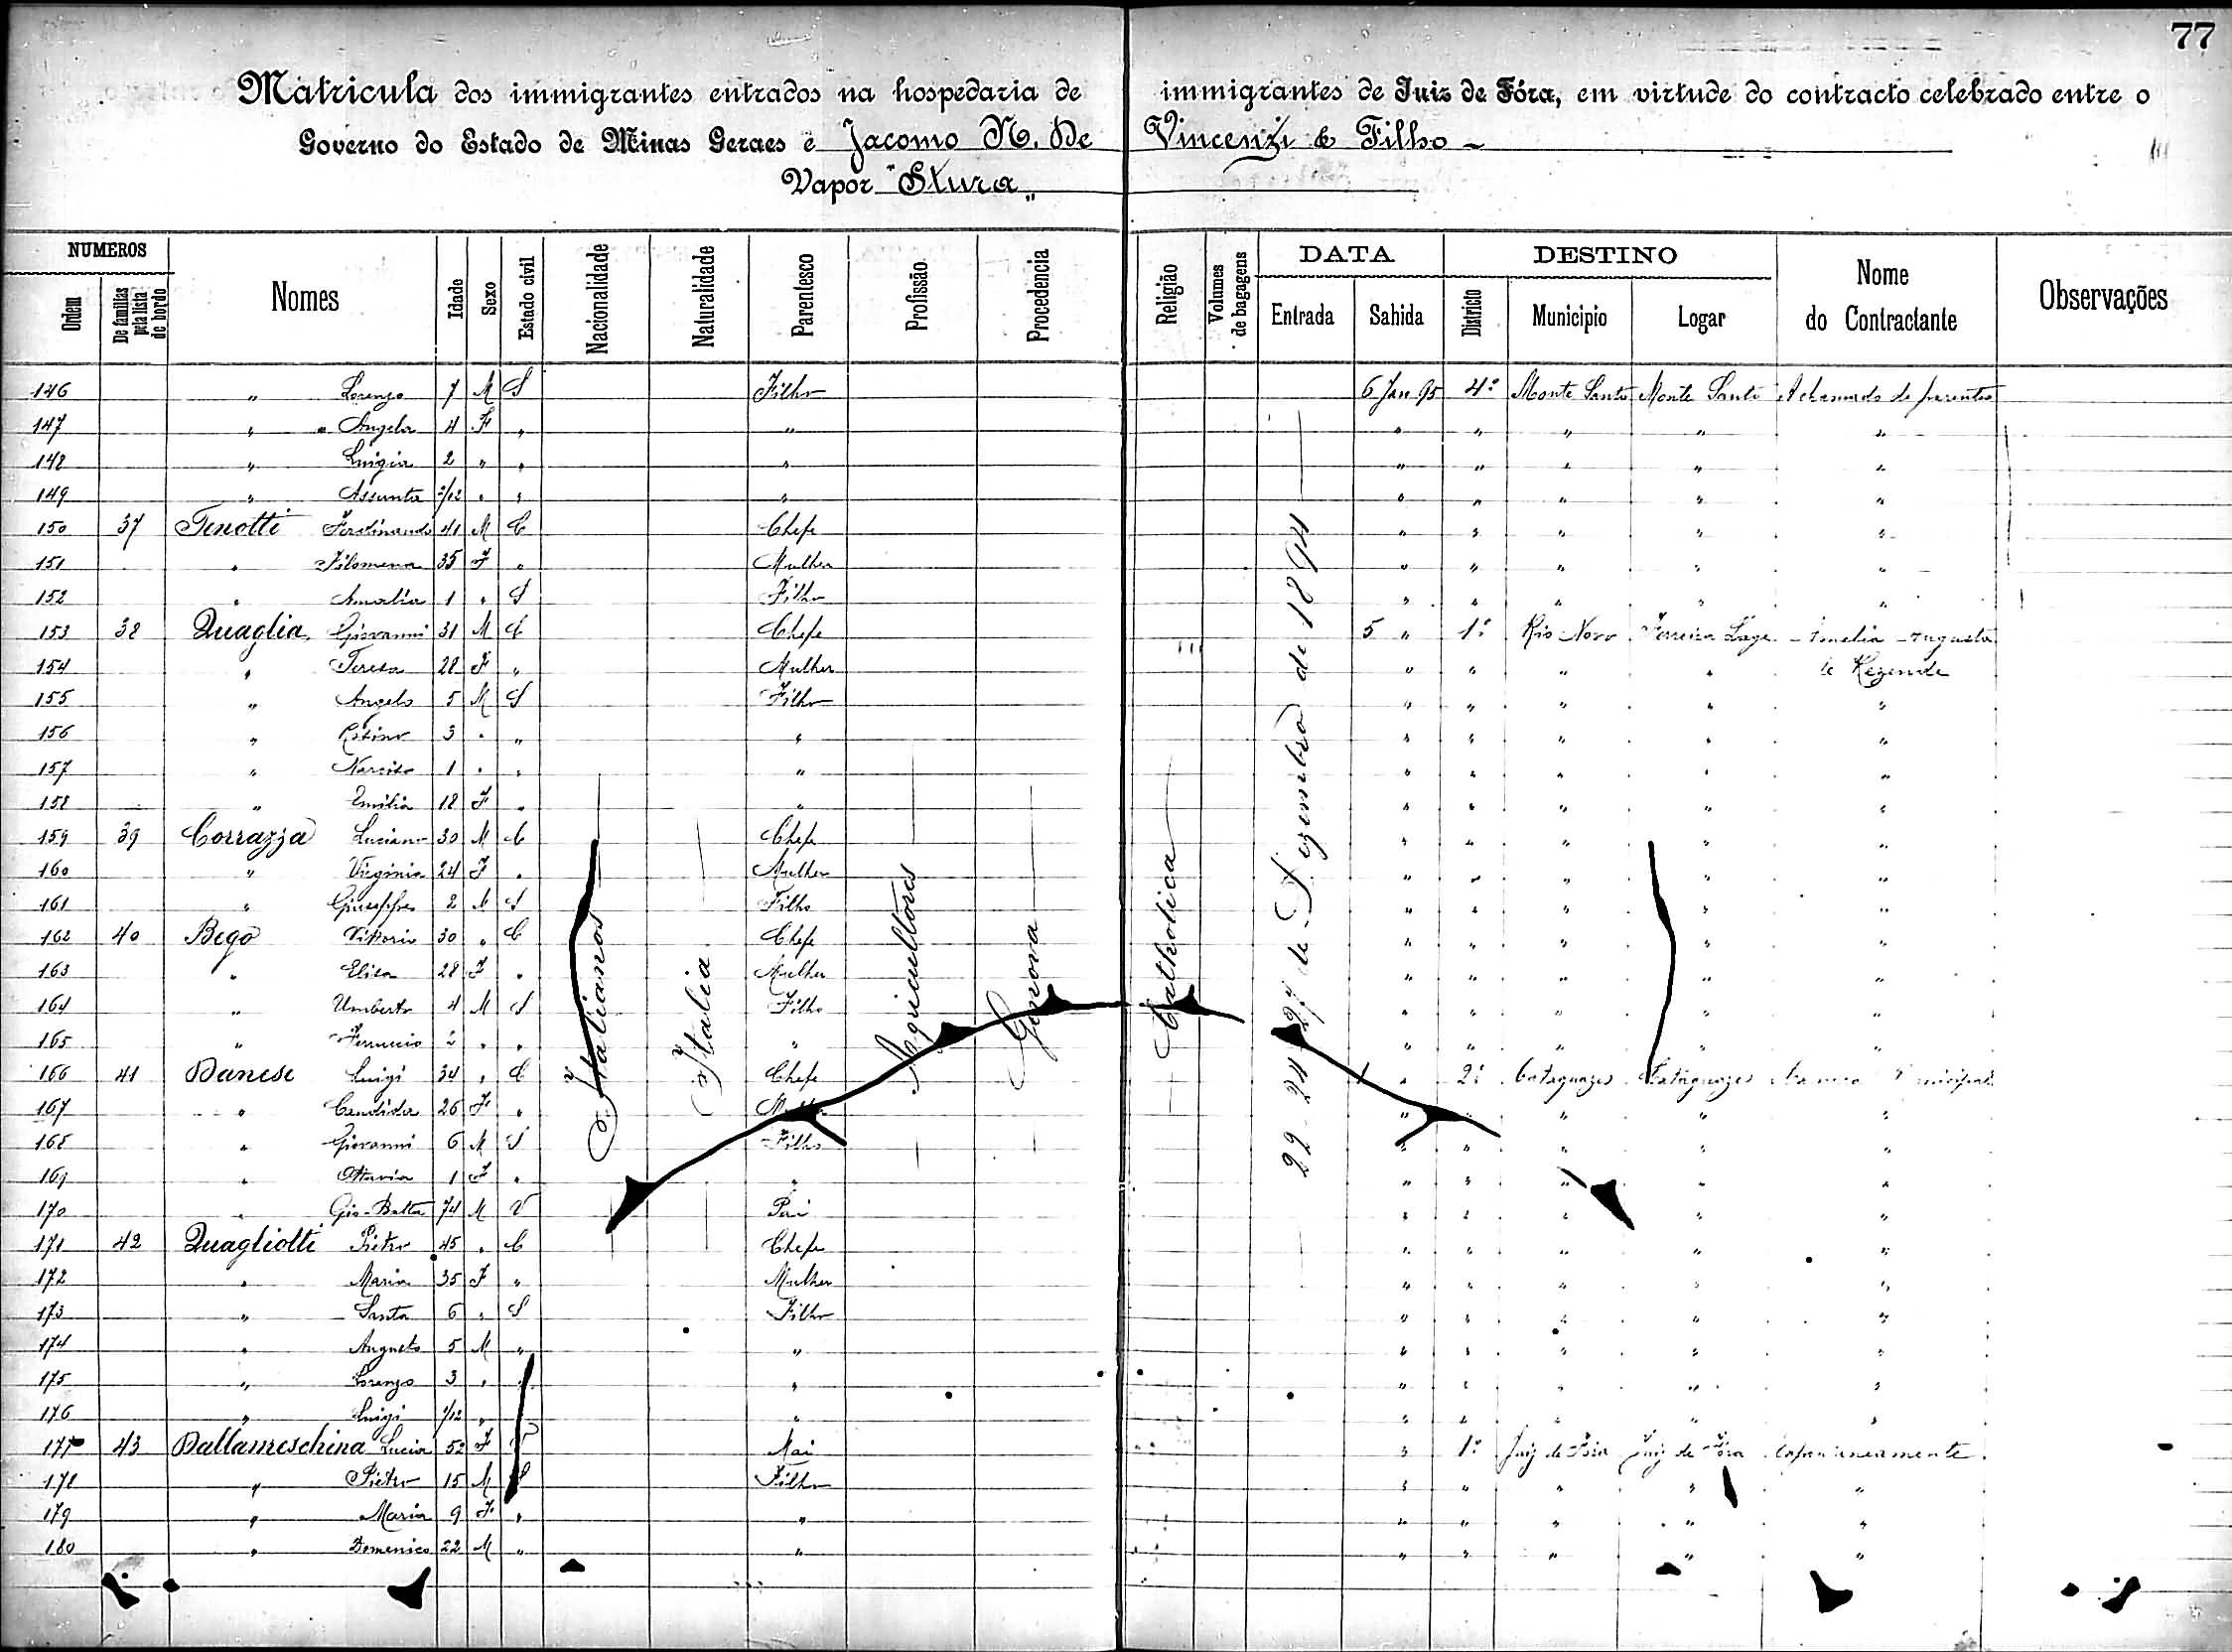 77
Matricula dos immigrantes entrados na hospedaria de immigrantes de Juiz de Fóra, em virtude do contracto celebrado entre o
Governo do Estado de Minas Geraes e Jacomo N. De Vincenzi & Filho
Vapor "Stura"
NUMEROS Nomes Idade Sexo Estado civil Nacionalidade Naturalidade Parentesco Profissão Procedencia Religião Volumes de bagagens DATA DESTINO Nome do Contractante Observações
Ordem De familias pela lista de bordo Entrada Sahida Districto Municipio Logar
Italianos Italia Agricultores Genova Catholica 22-24 27 de Dezembro de 1894
146 " Lorenzo 7 M S Filho 6 Jan 95 4º Monte Santo Monte Santo A chamado de parentes
147 " Angela 4 F " " " " " " "
148 " Luigia 2 " " " " " " " "
149 " Assunta /12 " " " " " " " "
150 37 Tenotti Ferdinando 41 M C Chefe " " " " "
151 " Filomena 35 F " Mulher " " " " "
152 " Amalia 1 " S Filho " " " " "
153 38 Quaglia Giovanni 31 M C Chefe 5 " 1º Rio Novo Ferreira Lage Amelia Augusta
154 " Teresa 28 F " Mulher " " " " de Rezende
155 " Angelo 5 M S Filho " " " " "
156 " 3 " " " " " " " "
157 " Narciso 1 " " " " " " " "
158 " Emilia 18 F " " " " " " "
159 39 Corrazza Luciano 30 M C Chefe " " " " "
160 " Virginia 24 F " Mulher " " " " "
161 " Giuseppe 2 M S Filho " " " " "
162 40 Bego Vittorio 30 " C Chefe " " " " "
163 " Elisa 28 F " Mulher " " " " "
164 " Umberto 4 M S Filho " " " " "
165 " Ferruccio 2 " " " " " " " "
166 41 Danese Luigi 34 " C Chefe 1 " 2º Cataguazes Cataguazes Camara Municipal
167 " Candida 26 F " Mulher " " " " "
168 " Giovanni 6 M S Filho " " " " "
169 " Ottavia 1 F " " " " " " "
170 " Gio-Batta 74 M V Pai " " " " "
171 42 Quagliotti Pietro 45 " C Chefe " " " " "
172 " Maria 35 F " Mulher " " " " "
173 " Santa 6 " S Filho " " " " "
174 " Augusto 5 M " " " " " " "
175 " Lorenzo 3 " " " " " " " "
176 " Luigi 1/12 " " " " " " "
177 43 Dallameschina Lucia 52 F V Mai " 1º Juiz de Fóra Juiz de Fóra Espontaneamente
178 " Pietro 15 M S Filho " " " " "
179 " Maria 9 F " " " " " " "
180 " Domenico 22 M " " " " " " "